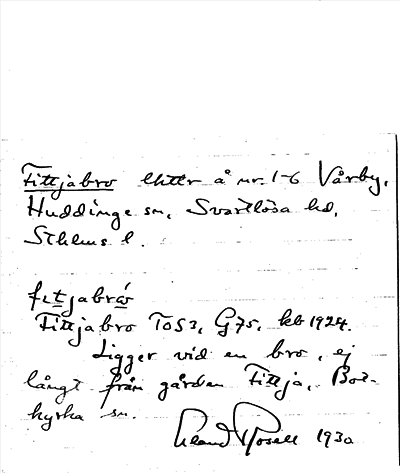 Fittjabro lhtr å nr. 1-6 Vårby,
Huddinge sn, Svartlösa hd,
Sthlms l.
fitjabrò
Fittjabro ToS3, G75, kb 1924.
Ligger vid en bro, ej
långt från gården Fittja, Bot-
kyrka sn.
Rosell 1930